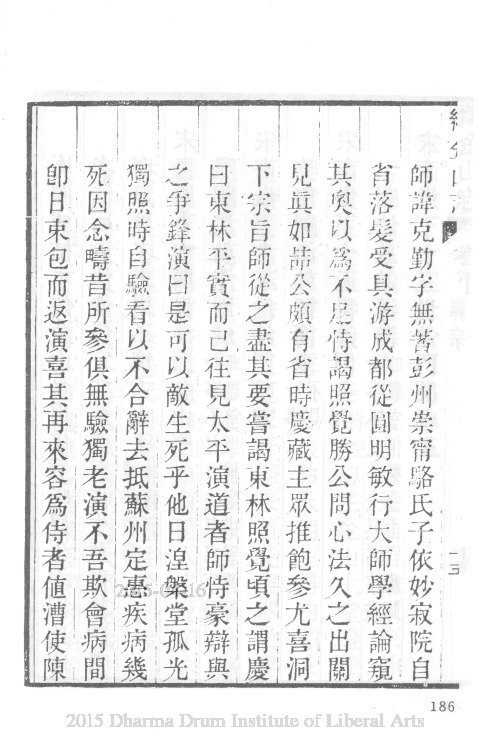 續金山志
十五
師諱克勤字無著彭州崇甯駱氏子依妙寂院自
省落髮受具游成都從圓明敏行大師學經論窺
其奧以為不足恃謁照覺勝公問心法久之出關
見眞如喆公頗有省時慶藏主眾推飽參尤喜洞
下宗旨師從之盡其要嘗謁東林照覺頃之謂慶
曰東林平實而已往見太平演道者師恃豪辯與
之爭鋒演曰是可以敵生死乎他日湼槃堂孤光
獨照時自驗看以不合辭去抵蘇州定惠疾病幾
死因念疇昔所參俱無驗獨老演不吾欺會病間
卽日束包而返演喜其再來容爲侍者値漕使陳
186
2015 Dharma Drum Institute of Liberal Arts